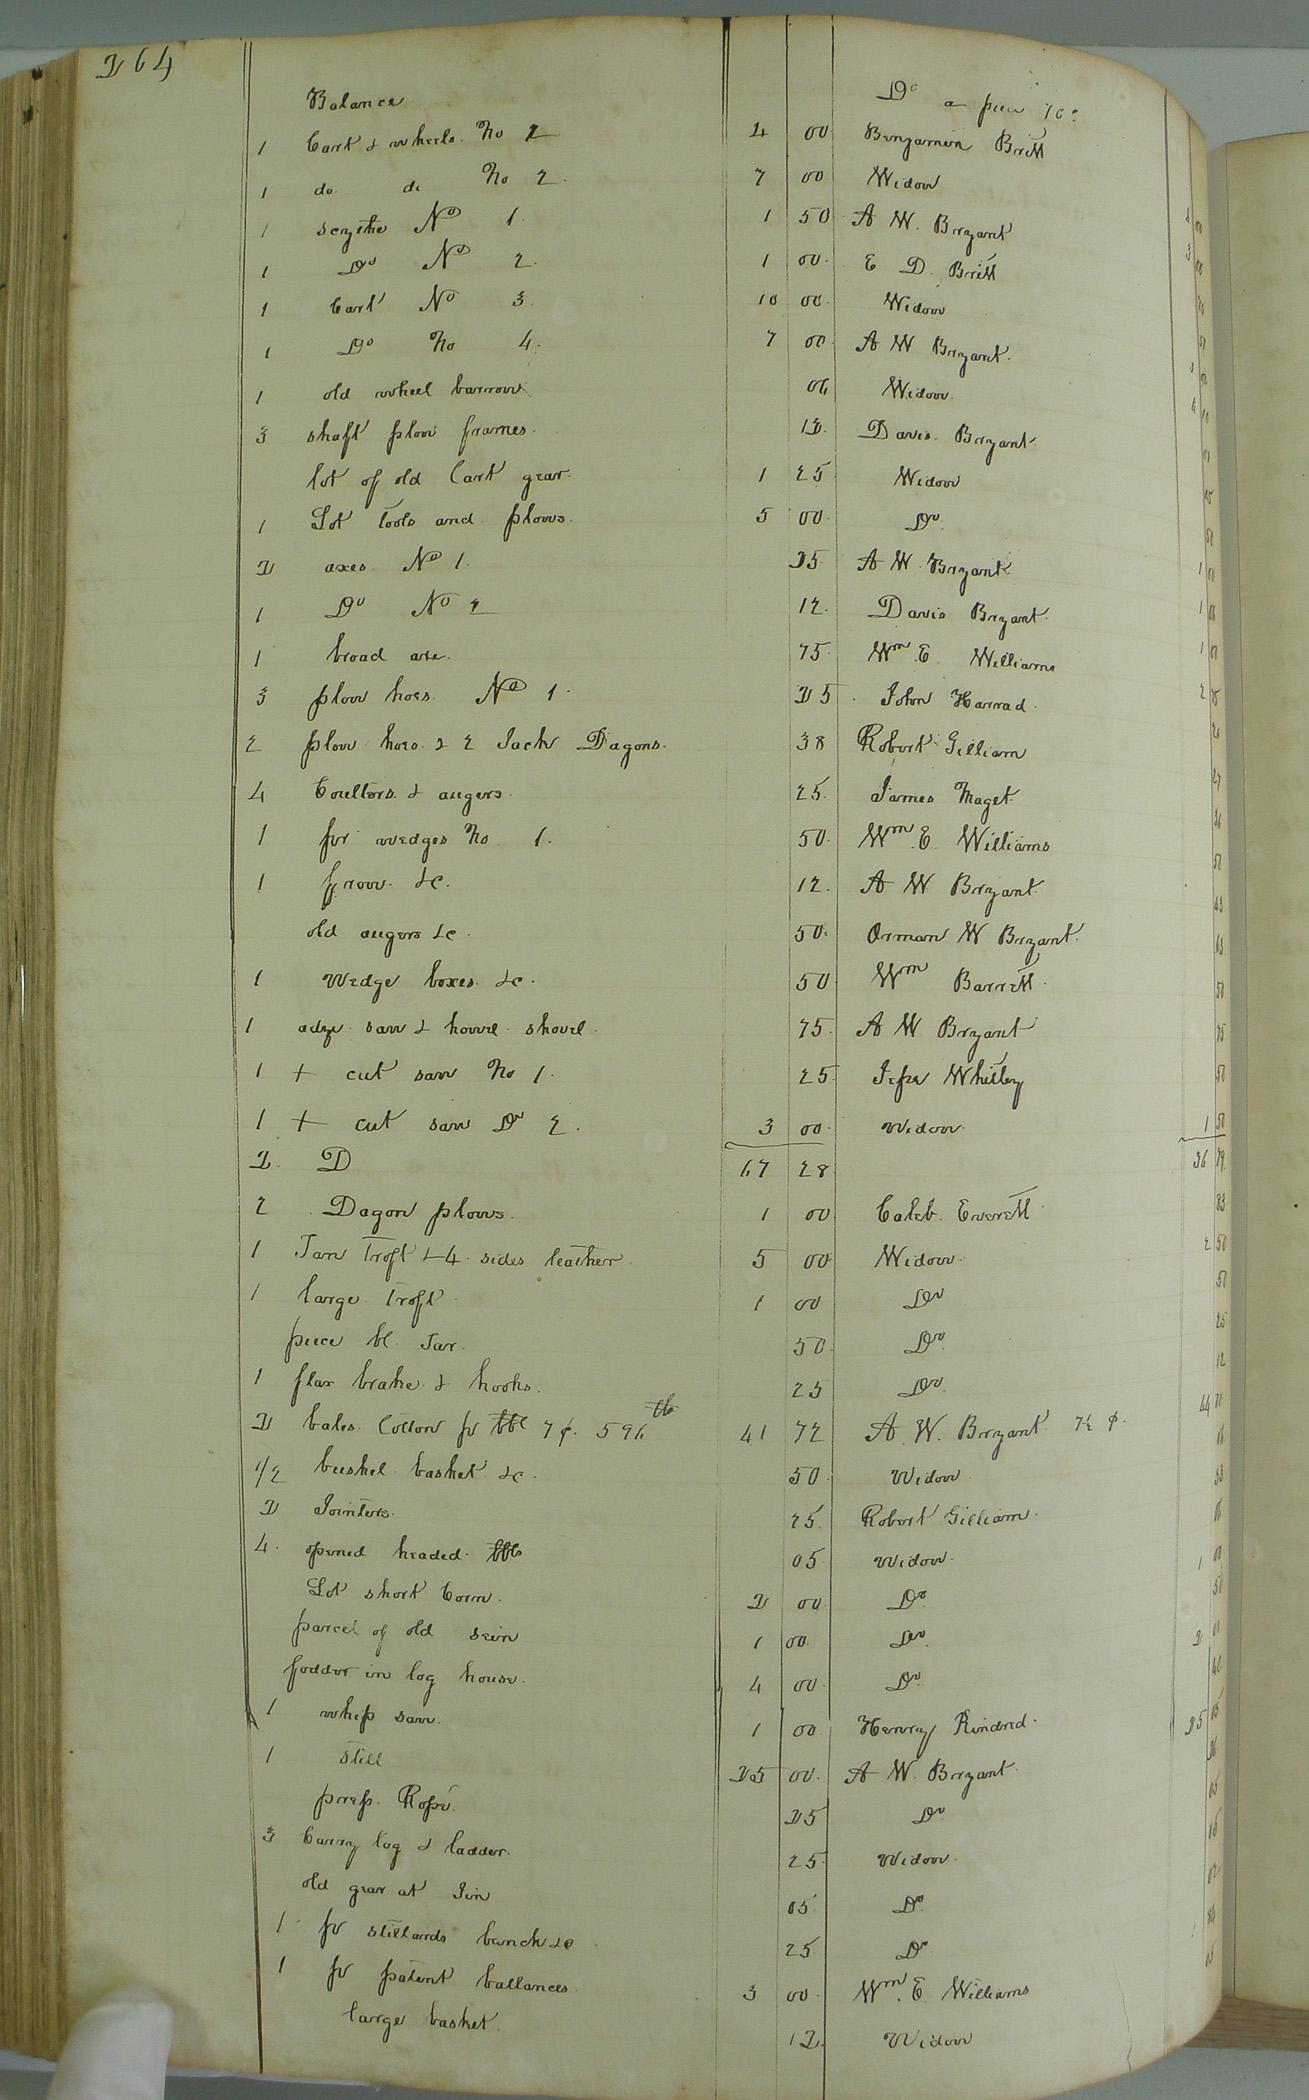 264
Balance Do a piece 70c
1 Cart & wheels No 1 4 00 Benjamin Britt
1 do do No 2 7 00 Widow
1 scythe No 1 1 50 A W. Bryant
1 Do No 2 1 00 E D. Britt
1 Cart No 3 10 00 Widow
1 Do No 4 7 00 A W Bryant
1 old wheel barrow 06 Widow
3 shaft plow frames 12 Davis Bryant
lot of old Cart gear 1 25 Widow
1 Lot Tools and plows 5 00 Do
2 axes No 1 25 A W Bryant
1 Do No 2 12 Davis Bryant
1 broad axe 75 Wm E Williams
3 plow hoes No 1 25 John Harrad
2 plow hoes & 2 Jack Dagons 38 Robert Gilliam
4 Coulters & augers 25 James Maget
1 pr wedges No 1 50 Wm E Williams
1 frow &c 12 A W Bryant
old augers &c 50 Orman W Bryant
1 Wedge boxes &c 50 Wm Barrett
1 adze saw & howel shovel 75 A W Bryant
1 + cut saw No 1 25 Jesse Whitley
1 + cut saw Do 2 3 00 Widow
2 D 67 28
2 Dagon plows 1 00 Caleb Everett
1 Tan Troft & 4 sides leather 5 00 Widow
1 large Troft 1 00 Do
piece bl Tar 50 Do
1 flax brake & hooks 25 Do
2 bales Cotton pr bbl 7¢ 596 lb 41 72 A. W. Bryant 7½ ¢
1/2 bushel basket &c 50 Widow
2 Jointers 25 Robert Gilliam
4 opened headed bbls 05 Widow
Lot short Corn 2 00 Do
parcel of old sein 1 00 Do
fodder in log house 4 00 Do
1 whip saw 1 00 Henry Kindred
1 still 25 00 A W. Bryant
press Rope 25 Do
3 Carry log & ladder 25 Widow
old gear at Gin 05 Do
1 pr stillards bench &c 25 Do
1 pr patent ballances 3 00 Wm E Williams
large basket 12 Widow